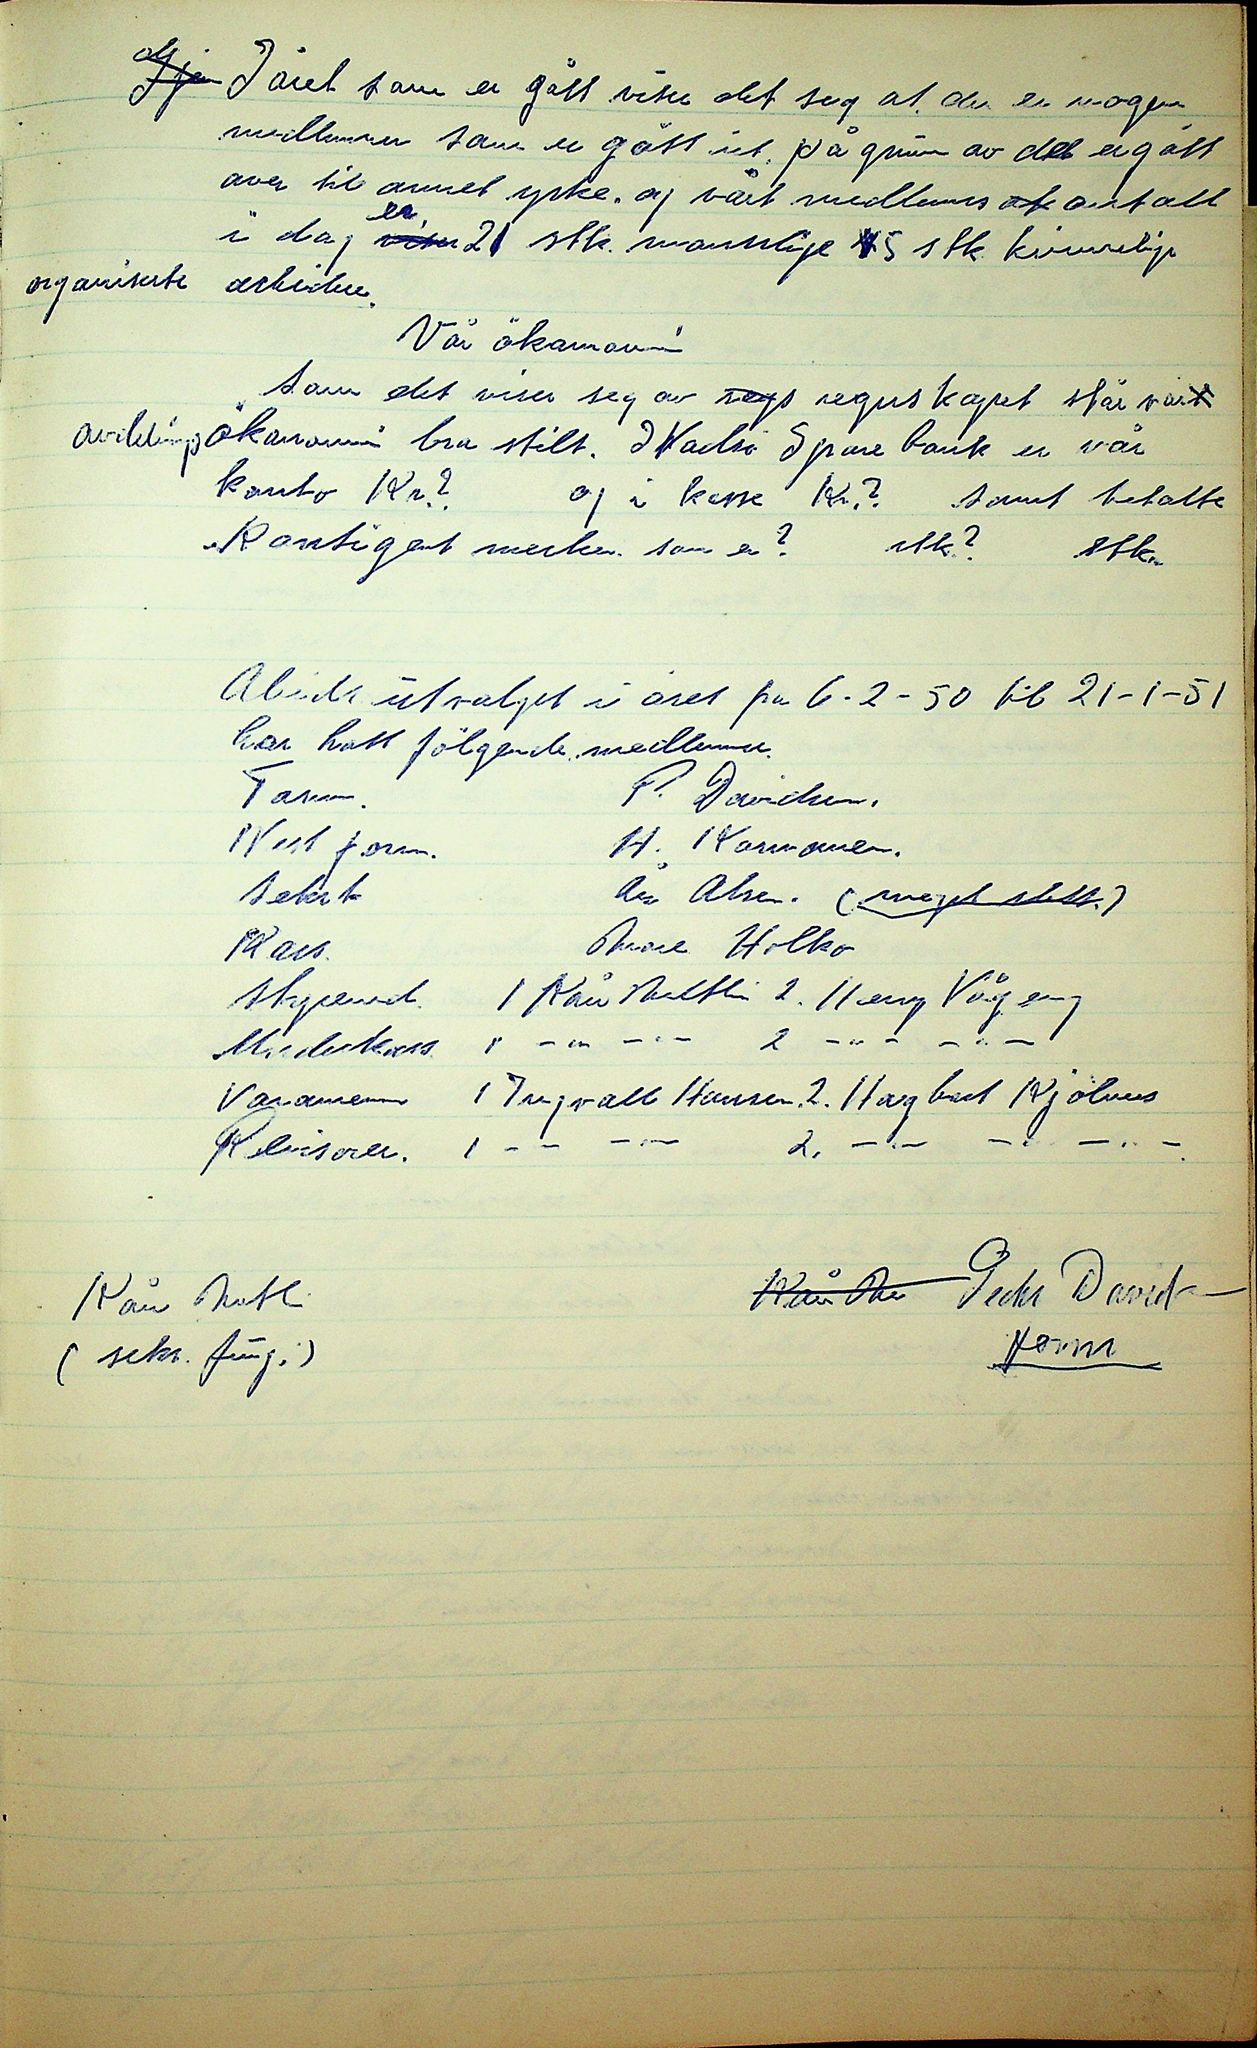 I året som er gått viser det seg at der er nogen
medlemmer som er gått ut. på grunn av det er gått
over til annet yrke. og vårt medlems antall
i dag er 21 stk. mannlige 5 stk. kvinnelige
organiserte arbeidere.
Vår ökonomi
Som det viser seg av regnskapet står vår
avdelings ökonomi bra stilt. I Vadsö Sparebank er vår
konto Kr.? og i kasse Kr.? samt betalte
Kontigent merker som er? stk? stk.
utvalget i året fra 6-2-50 til 21-1-51
har hatt fölgende medlemmer.
Form. P. Davidsen.
Nest form. H. Kormanen.
Sekr. Olsen. (meget slett.)
Kass. Holko
Styremed. 1 Kåre 2. Henry Vågeng
1 -"- -"- 2 -"- -"-
Varamenn 1 Ingvall Hansen. 2. Hagbart Kjölnes
Revisorer. 1 -"- -"- 2. -"- -"- -"-.
Kåre Kåre Peder Davidsen
(sekr. fung.) Form